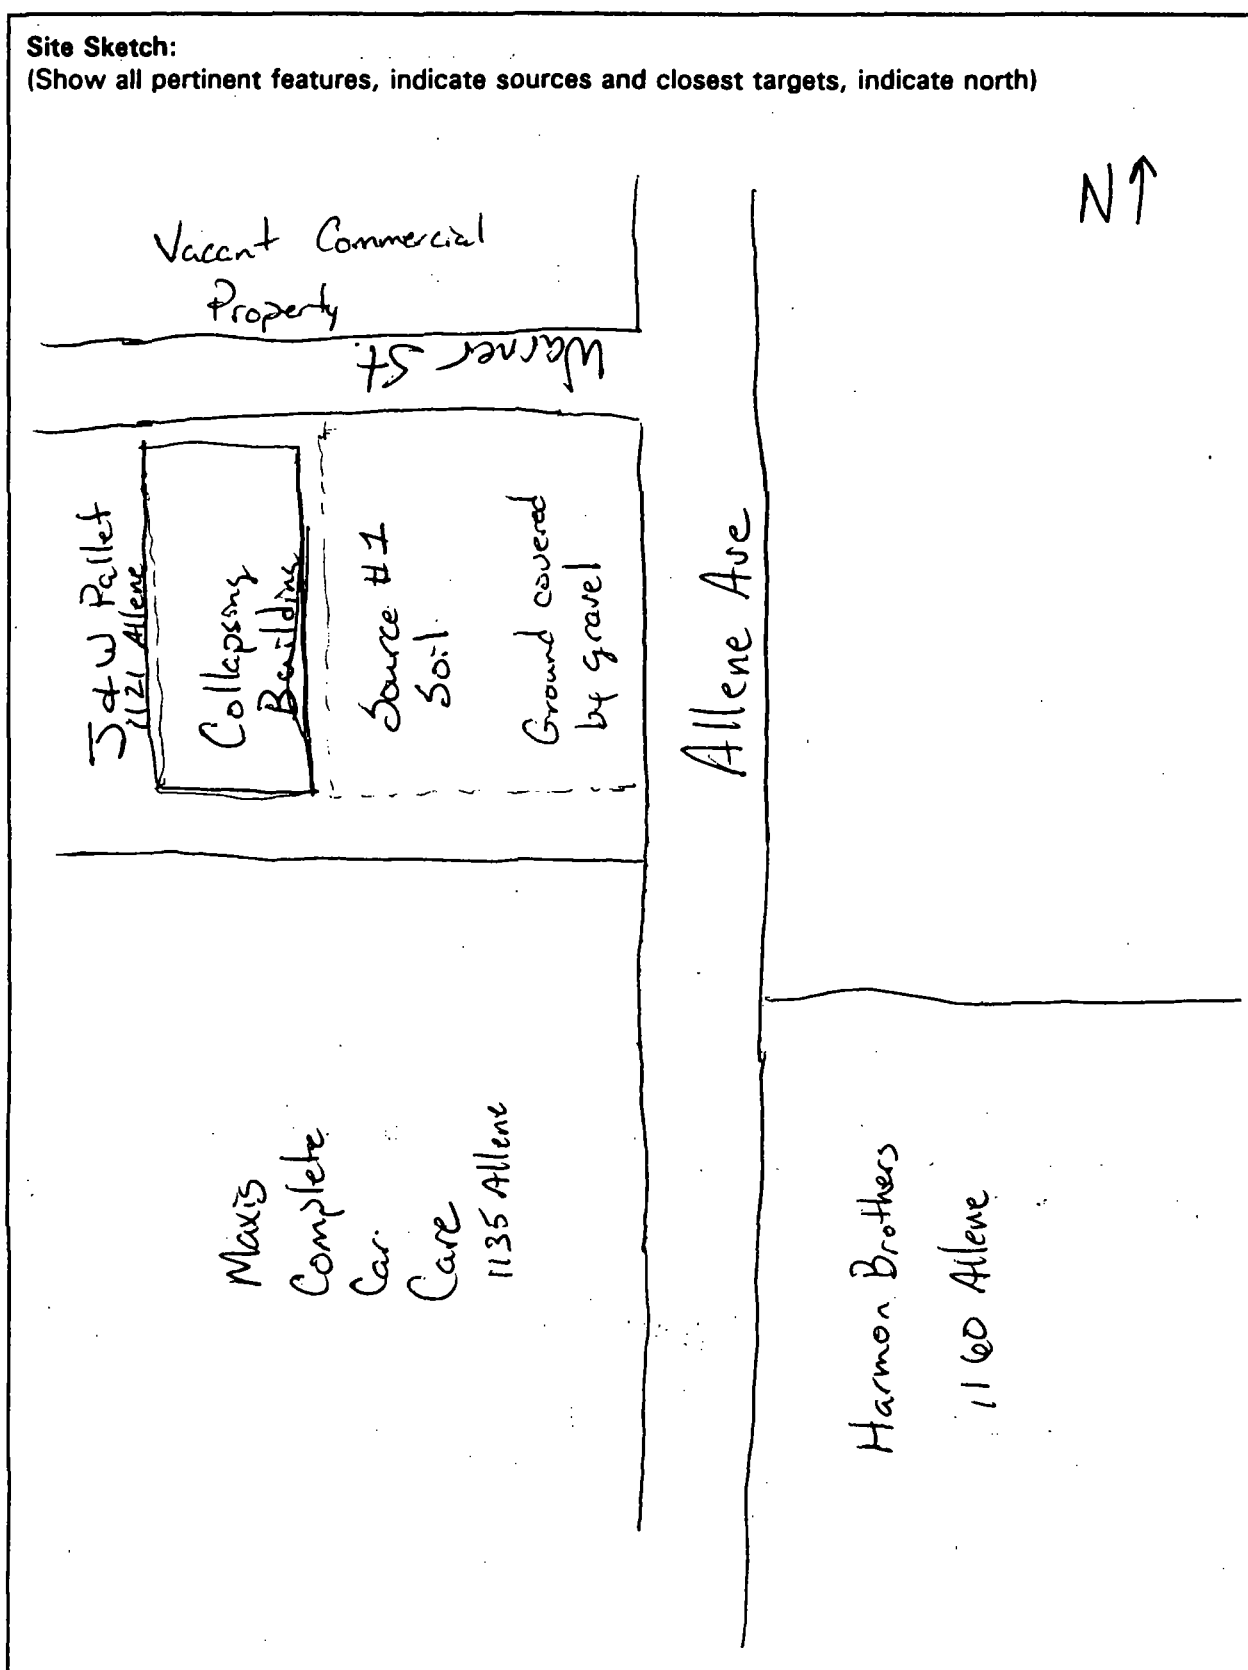 Site Sketch:
(Show all pertinent features, indicate sources and closest targets, indicate north)
N↑
Vacant Commercial
Property
Warner St.
J & W Pallet
1121 Allene
Collapsing
Building
Source #1
Soil
Ground covered
by gravel
Allene Ave
Maxis
Complete
Car
Care
1135 Allene
Harmon Brothers
1160 Allene